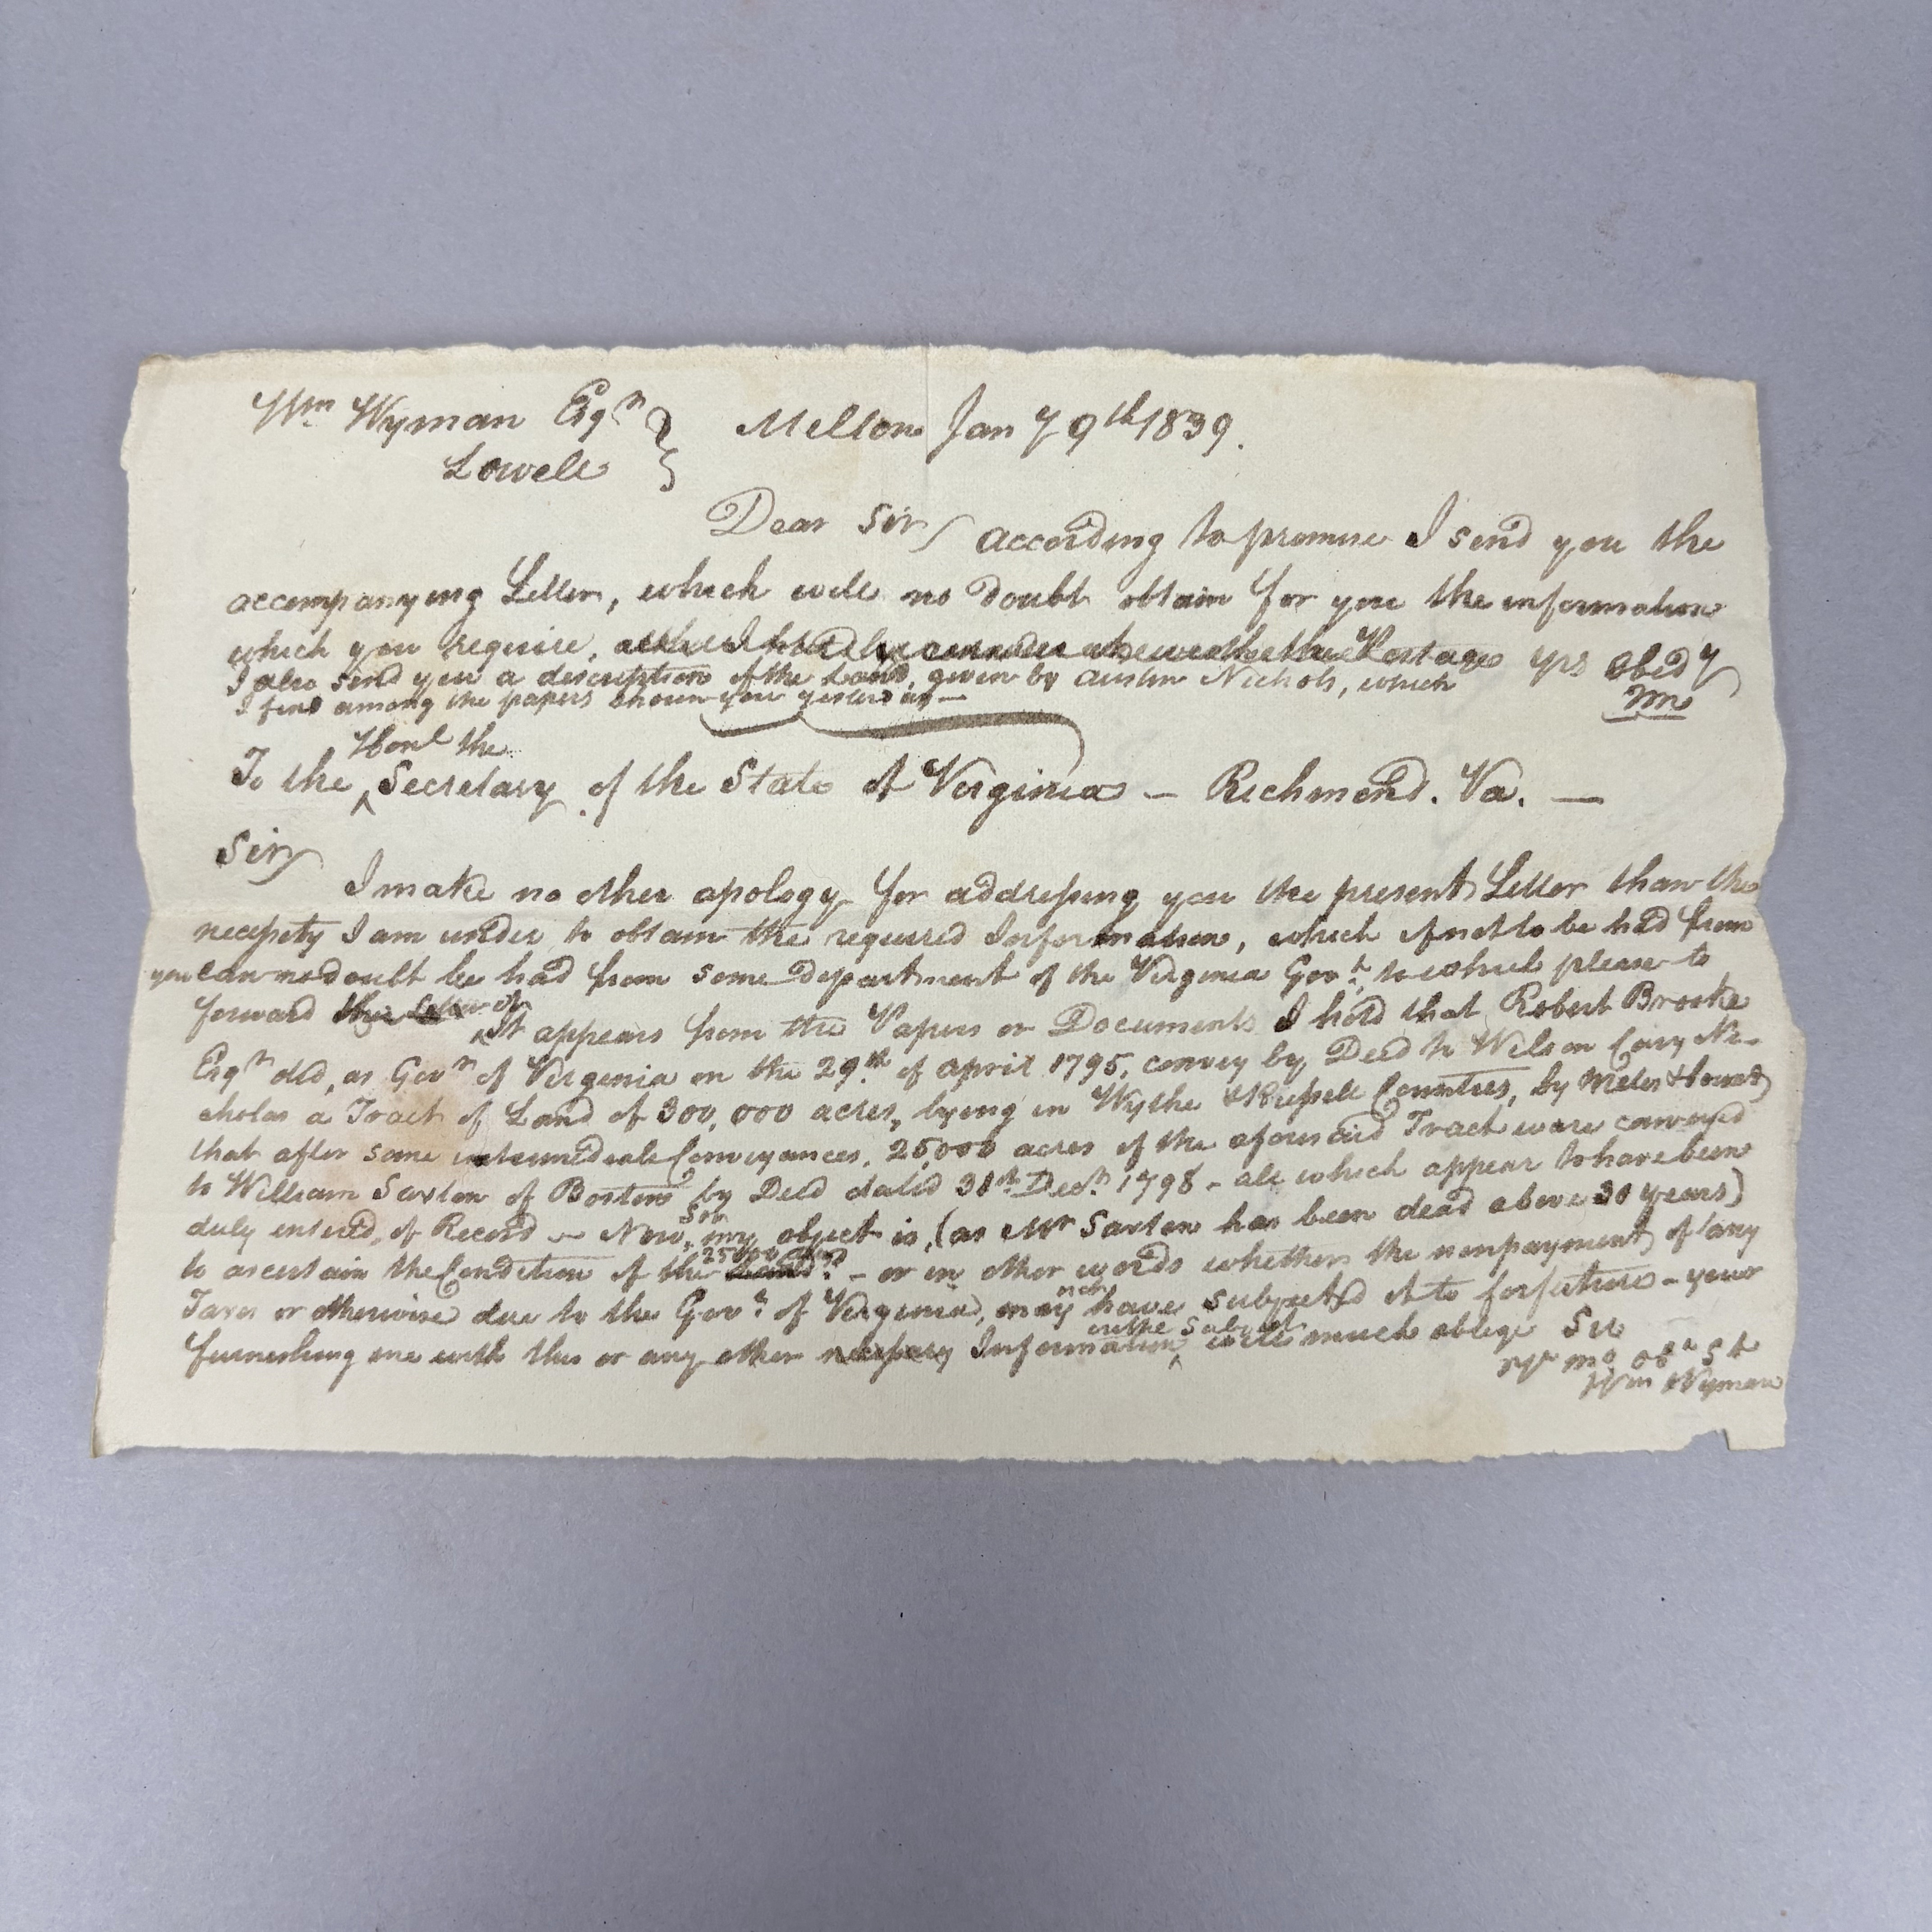 Wm Wyman Esqr
Lowell
Milton Jany 9th 1839.
Dear Sir, According to promise I send you the
accompanying Letter, which will no doubt obtain for you the information
which you require, Postage yrs Obedy
I also send you a description of the Land, given by Austin Nichols, which
I find among the papers shown you yesterday —
Honl the
To the ^ Secretary of the State of Virginia — Richmond. Va. —
Sir,
I make no other apology for addressing you the present Letter than the
necessity I am under to obtain the required Information, which if not to be had from
you can no doubt be had from some Department of the Virginia Govt, to which please to
forward this letter ^ It appears from the Papers or Documents I hold that Robert Brooke
Esqr did, as Govr of Virginia on the 29th of April 1795, convey by Deed to Wilson Cary Ni-
cholas a Tract of Land of 300,000 acres, lying in Wythe & Russell Counties, by Metes & bounds
that after some intermediate Conveyances, 25,000 acres of the aforesaid Tract were conveyed
to William Saxton of Boston by Deed dated 31st Decr 1798 - all which appear to have been
Sir
duly entered, of Record — Now, my object is, (as Mr Saxton has been dead above 30 years)
25000 acres
to ascertain the Condition of the Land - or in other words whether the nonpayment of any
not
Taxes or otherwise due to the Govt of Virginia, may have subjected it to forfeiture - your
on the subject
furnishing me with this or any other necessary Information ^ will much oblige Sir
yr mo obt St
Wm Wyman